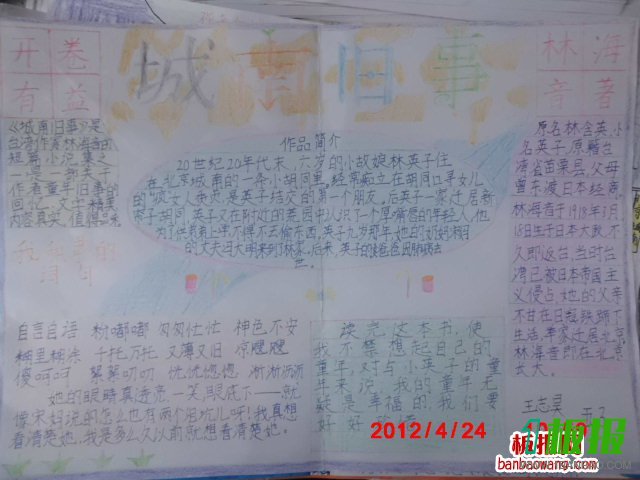 开卷
有益
城南旧事
林海
音著
《城南旧事》是
台湾作家林海音的
短篇小说集之
一
作者童年旧事的
回忆,文字精美
内容真实,值得品味。
作品简介
20世纪20年代末,六岁的小姑娘林英子住
在北京城南的一条小胡同里。经常痴立在胡同口寻女儿
的“疯女人”秀贞,是英子结交的第一个朋友。后英子一家迁居新
帘子胡同。英子又在附近的荒园中认识了一个厚嘴唇的年轻人,他
为了供弟弟上学,不得不去偷东西。英子九岁那年她的奶妈宋妈
的丈夫冯大明来到林家。后来,英子的爸爸因肺病去
世。
原名林含英,小
名英子,原籍台
湾省苗栗县,父母
曾东渡日本经商。
林海音于1918年3月
18日生于日本大阪,不
久即返台,当时台
湾已被日本帝国主
义侵占,她的父亲
不甘在日寇铁蹄下
生活,举家迁居北京,
林海音即在北京
长大。
词句
自言自语 粉嘟嘟 匆匆忙忙 神色不安
糊里糊涂 千托万托 又薄又旧 凉飕飕
傻呵呵 絮絮叨叨 恍恍惚惚 淅淅沥沥
她的眼睛真透亮,一笑,眼底下——就
像宋妈说的,怎么也有两个泪坑儿呀!我真想
看清楚她,我是多么久以前就想看清楚她。
读完这本书,使
我不禁想起自己的
童年,对与小英子的童
年来说,我的童年无
疑是幸福的,我们要
好好
2012/4/24
板报网
板报